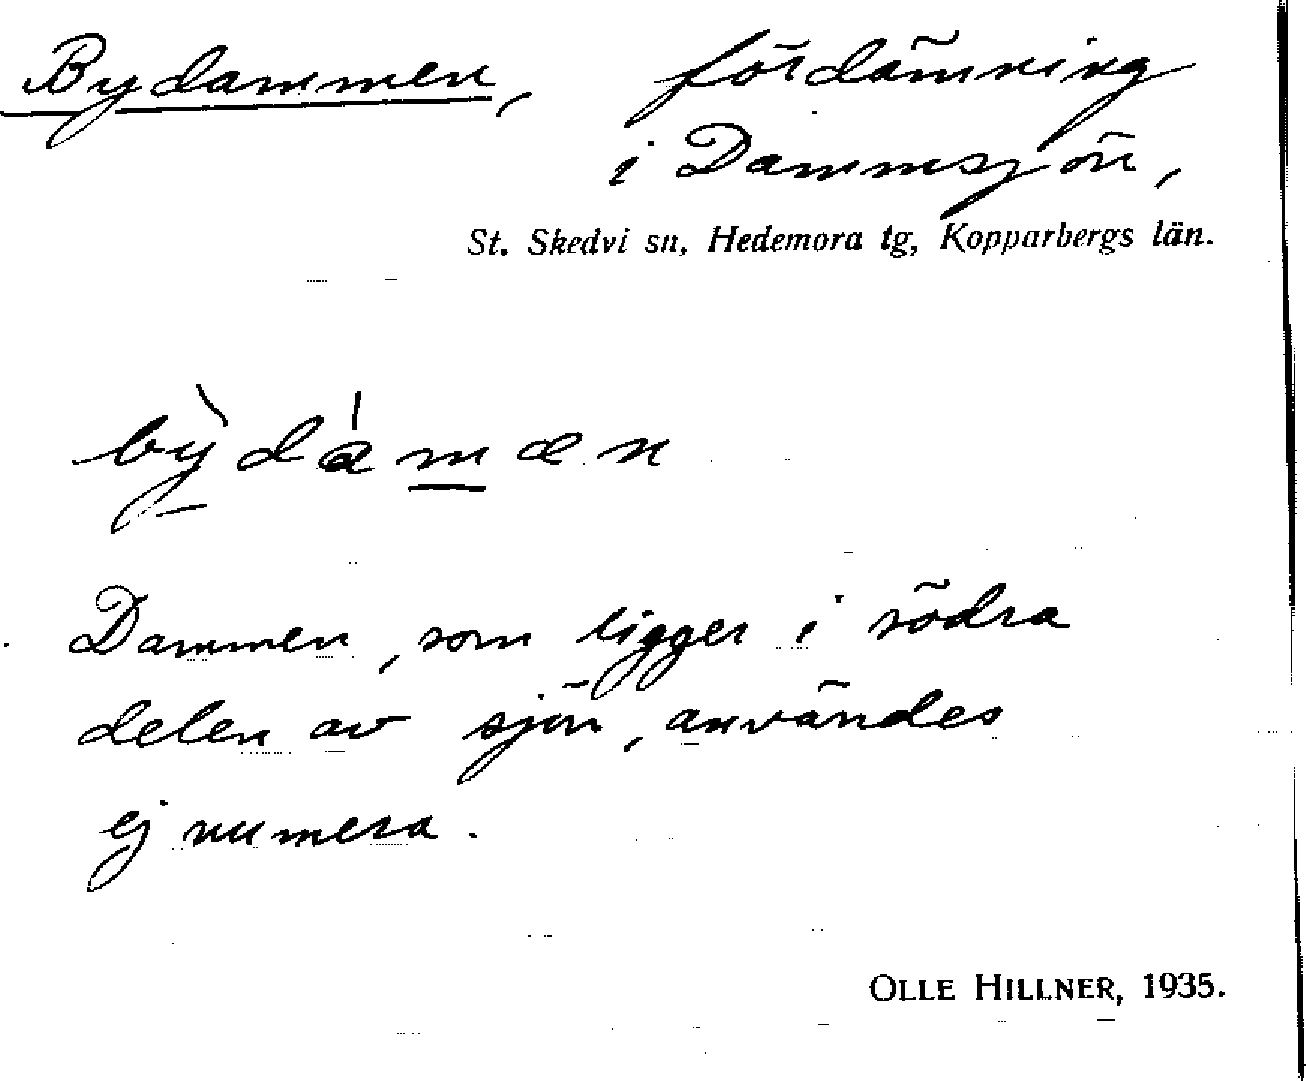 Bydammen, fördämning
i Dammsjön,
St. Skedvi sn, Hedemora tg, Kopparbergs län.
bỳdámæn
Dammen, som ligger i södra
delen av sjön, användes
ej numera.
OLLE HILLNER, 1935.